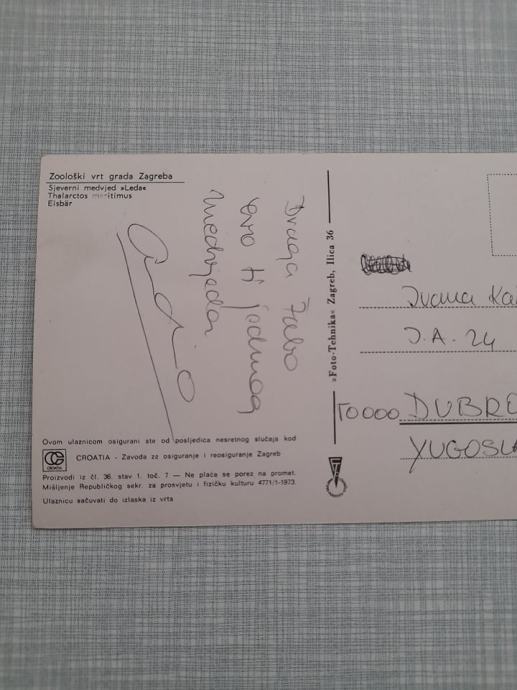 Zoološki vrt grada Zagreba
Sjeverni medvjed »Leda«
Thalarctos maritimus
Eisbär
Draga Žabo
evo ti jednog
medvjeda
»Foto-Tehnika« Zagreb, Ilica 36
Ivana Ka
J.A. 24
50000 DUBRE
YUGOSLA
Ovom ulaznicom osigurani ste od posljedica nesretnog slučaja kod
CROATIA - Zavoda za osiguranje i reosiguranje Zagreb
CROATIA
Proizvodi iz čl. 36. stav 1. toč. 7 — Ne plaća se porez na promet.
Mišljenje Republičkog sekr. za prosvjetu i fizičku kulturu 4771/1-1973.
Ulaznicu sačuvati do izlaska iz vrta